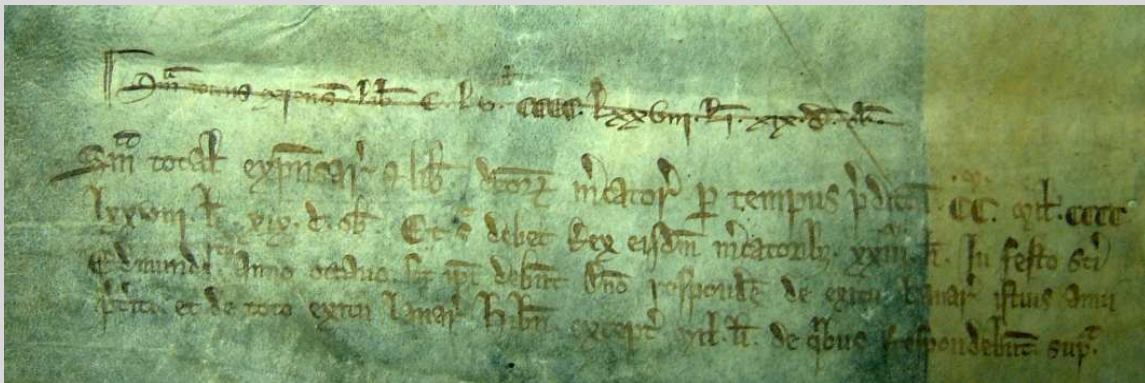 Sm̅ totius expens̅ lib̅ C. Lv. cccc. lxxviii. li. xix. d. ob.
Sm̅ total̅ expn̅sar̅ ⁊ lib̅ dc̅orꝝ m̅cator̅ ꝑ tempus p̅dict̅ CC. mil̅. cccc
lxxviii. l̅. xix. d. ob̅. Et s̅ debet Rex eisdm̅ m̅catoribꝫ. xxiii. l̅i. In festo sc̅i
Edmundi Anno octavo. debn̅t dn̅o respondē de exitu lanar̅ istius Anni
et de toto exitu lanar̅ hib̅n except̅ xl. l̅i. de qͥbus respondebūt sup̅ᵃ.